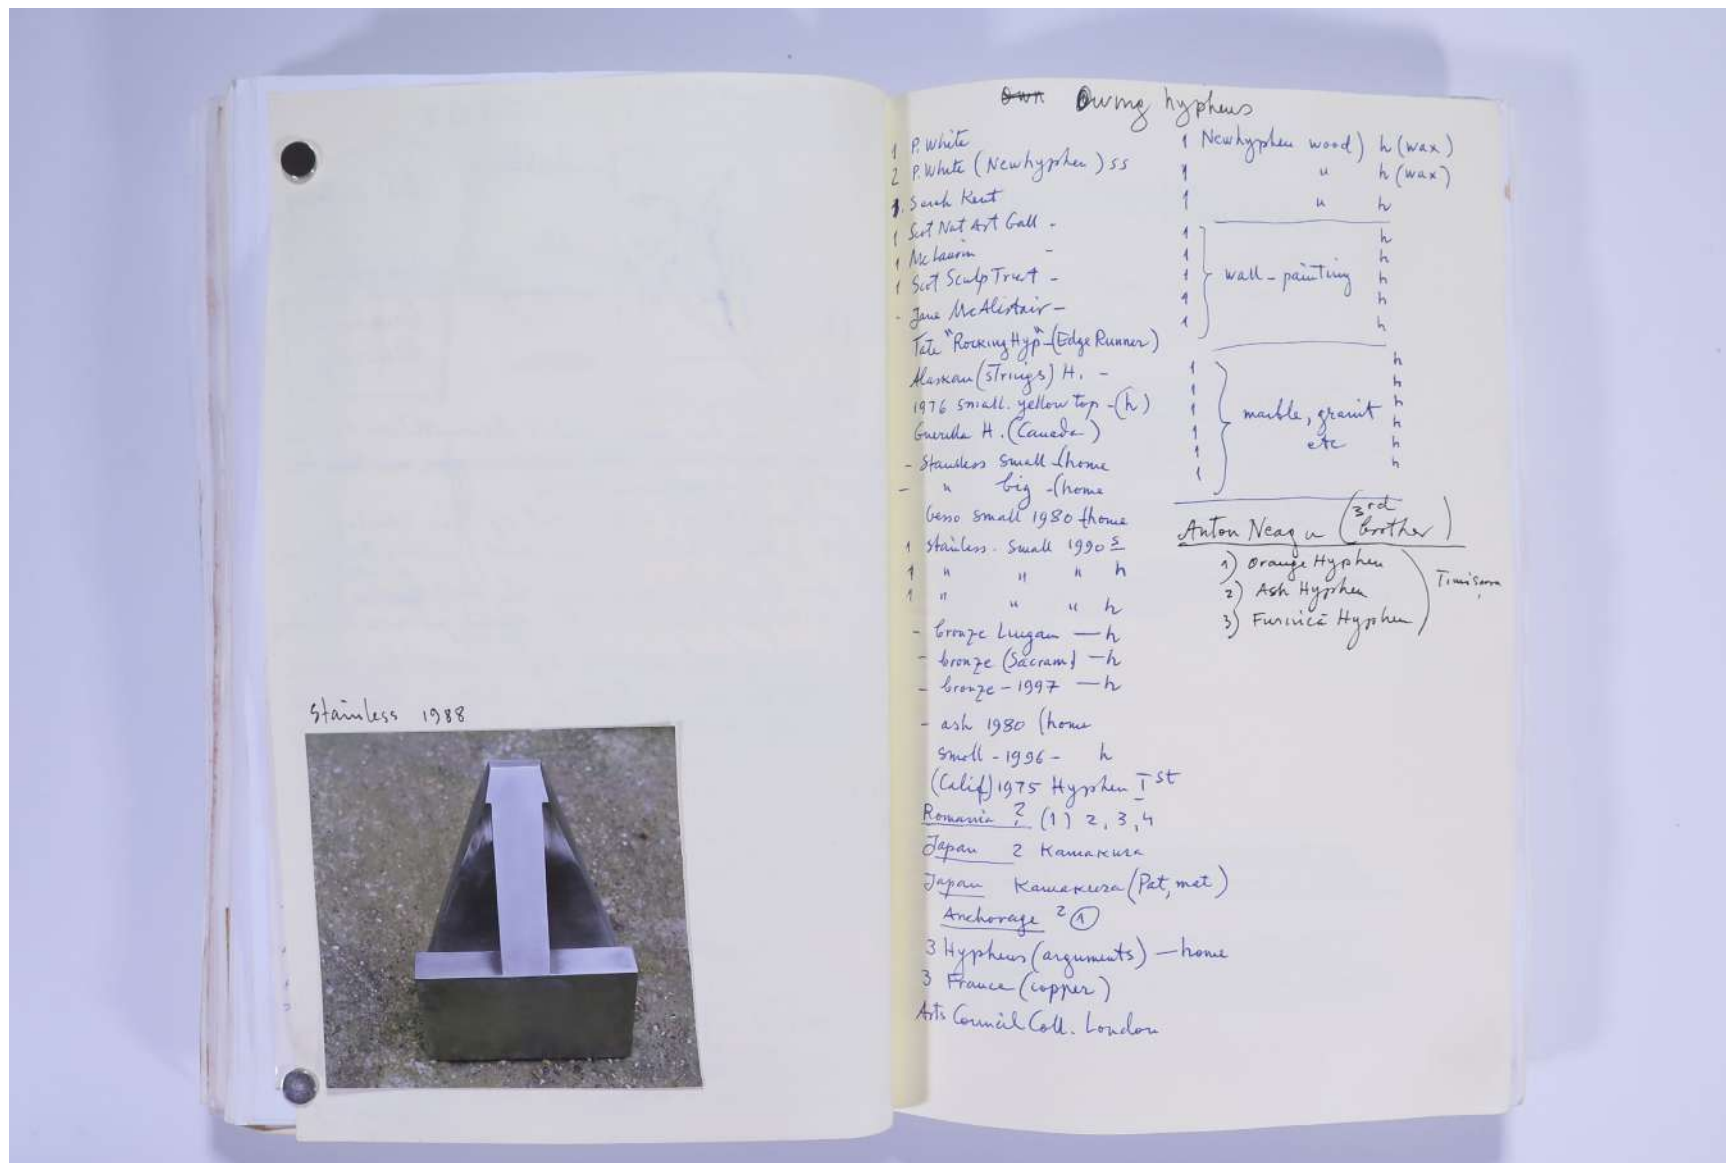 Stainless 1988
Own Owing hyphens
1 P. White
2 P. White (Newhyphen) ss
1. Sarah Kent
1 Scot Nat Art Gall -
1 McLaurin -
1 Scot Sculp Trust -
- Jane McAlistair -
Tate "Rocking Hyp" - (Edge Runner)
Alaskan (strings) H. -
1976 small. yellow top - (h)
Guerilla H. (Canada)
- Stainless small - (home
- " big - (home
Gesso small 1980 (home
1 Stainless. Small 1990 s
1 " " " h
1 " " " h
- bronze Lugan — h
- bronze (Sacram) — h
- bronze - 1997 — h
- ash 1980 (home
small - 1996 - h
(Calif) 1975 Hyphen I st
Romania ? (1) 2, 3, 4
Japan 2 Kamakura
Japan Kamakura (Pat, mat)
Anchorage 2 1
3 Hyphens (arguments) — home
3 France (copper)
Arts Council Coll. London
1 Newhyphen wood) h (wax)
1 " h (wax)
1 " h
1 h
1 h
1 wall-painting h
1 h
1 h
1 h
1 h
1 h
1 marble, granit h
1 etc h
1 h
Anton Neagu (3rd brother)
1) Orange Hyphen
2) Ash Hyphen
3) Furnică Hyphen
Timișoara